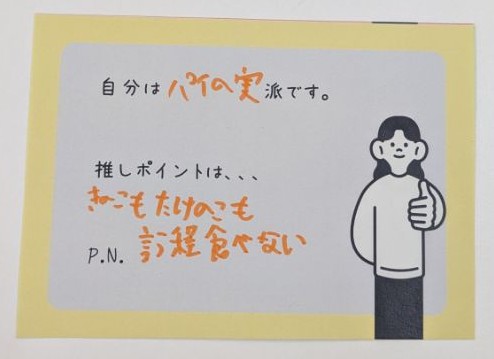 自分はパイの実派です。
推しポイントは、、、
きのこもたけのこも
言う程食べない
P.N.